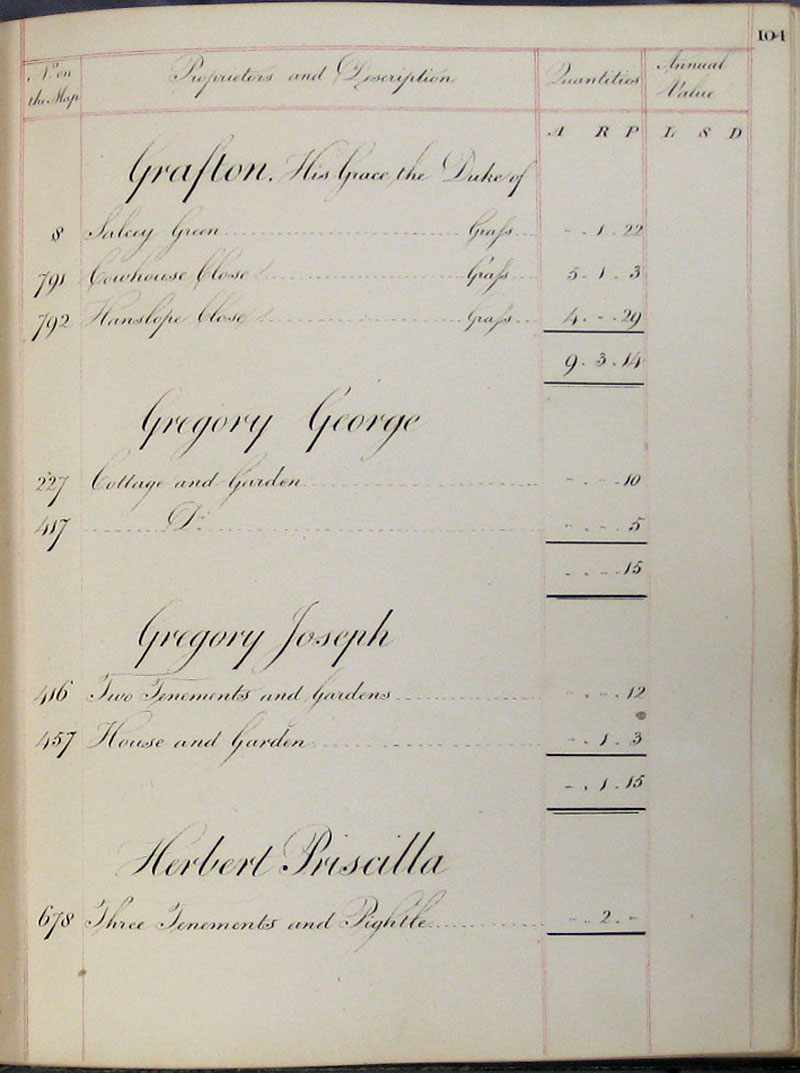 104
No on the Map Proprietors and Description Quantities Annual Value
A R P L S D
Grafton. His Grace the Duke of
8 Salcey Green Graſs - . 1 . 22
791 Cowhouse Close Graſs 5 . 1 . 3
792 Hanslope Close Graſs 4 . - . 29
9 . 3 . 14
Gregory George
227 Cottage and Garden - . - . 10
417 Do - . - . 5
- . - . 15
Gregory Joseph
416 Two Tenements and Gardens - . - . 12
457 House and Garden - . 1 . 3
- . 1 . 15
Herbert Priscilla
678 Three Tenements and Pightle - . 2 . -